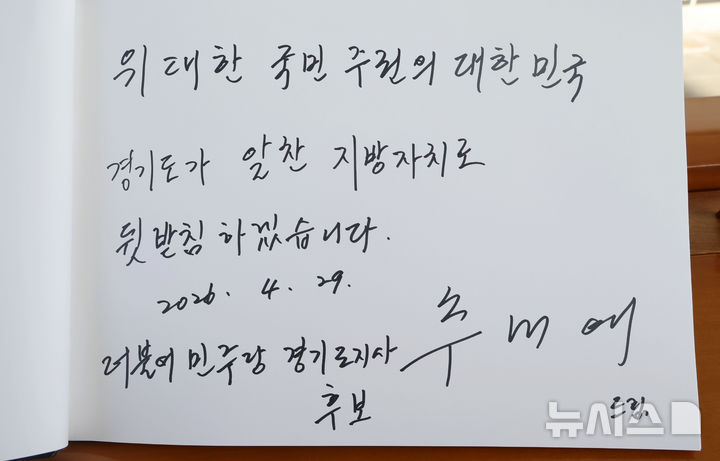 위대한 국민 주권의 대한민국
경기도가 알찬 지방자치로
뒷받침 하겠습니다.
2026. 4. 29.
더불어 민주당 경기도지사 추미애
후보 드림.
뉴시스